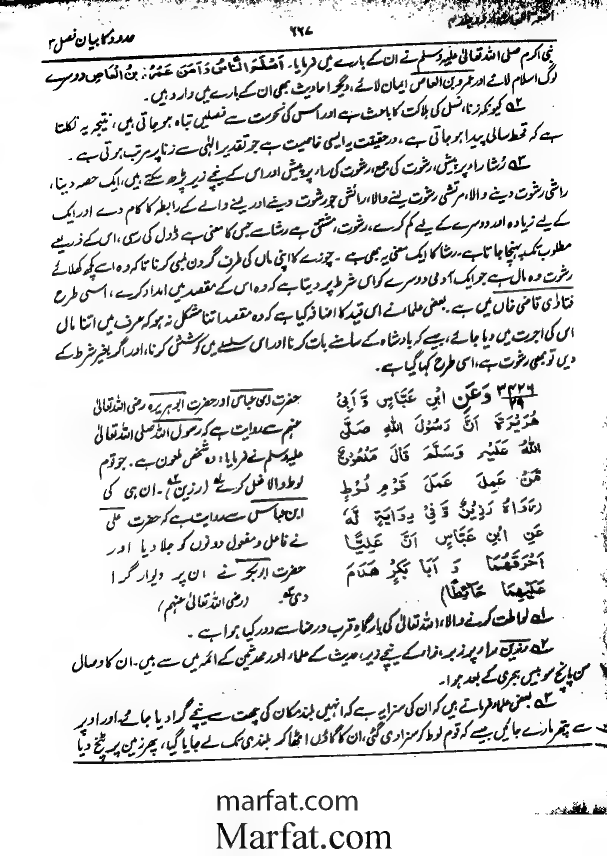 اشعة اللمعات اردو جلد پنجم ۲۲۷ حدود کا بیان فصل ۳
نبی اکرم صلی اللہ تعالیٰ علیہ وسلم نے ان کے بارے میں فرمایا۔ اَسْلَمَ النَّاسُ وَاٰمَنَ عَمْرُو بْنُ الْعَاصِ دوسرے
لوگ اسلام لائے اور عمرو بن العاص ایمان لائے، دیگر احادیث بھی ان کے بارے میں وارد ہیں۔
۲ کیونکہ زنا، نسل کی ہلاکت کا باعث ہے اور اس کی نحوست سے فصلیں تباہ ہو جاتی ہیں، نتیجہ یہ نکلتا
ہے کہ قحط سالی پیدا ہو جاتی ہے، درحقیقت یہ ایسی خاصیت ہے جو تقدیر الٰہی سے زنا پر مرتب ہوتی ہے۔
۳ رُشا راء پر پیش، رشوت کی جمع، رشوت کی راء پر پیش اور اس کے نیچے زیر پڑھ سکتے ہیں، ایک حصہ دینا،
راشی رشوت دینے والا، مرتشی رشوت لینے والا، رائش جو رشوت دینے اور لینے والے کے رابطہ کا کام دے اور ایک
کے لیے زیادہ اور دوسرے کے لیے کم کرے، رشوت، مشتق ہے رشاء سے جس کا معنی ہے ڈول کی رسی، اس کے ذریعے
مطلوب تک پہنچا جاتا ہے۔ رشا کا ایک معنی یہ بھی ہے۔ چوزے کا اپنی ماں کی طرف گردن لمبی کرنا تاکہ وہ اسے کچھ کھلائے
رشوت وہ مال ہے جو ایک آدمی دوسرے کو اس شرط پر دیتا ہے کہ وہ اس کے مقصد میں امداد کرے، اسی طرح
فتاویٰ قاضی خاں میں ہے۔ بعض علماء نے اس قید کا اضافہ کیا ہے کہ وہ مقصد اتنا مشکل نہ ہو کہ عرف میں اتنا مال
اس کی اجرت میں دیا جائے، جیسے کہ بادشاہ کے سامنے بات کرنا اور اس سلسلے میں کوشش کرنا، اور اگر بغیر شرط کے
دیں تو بھی رشوت ہے، اسی طرح کہا گیا ہے۔
۳۴۲۶
۲۹ وَعَنِ ابْنِ عَبَّاسٍ وَّ اَبِیْ
ھُرَیْرَۃَ اَنَّ رَسُوْلَ اللہِ صَلَّی
اللہُ عَلَیْہِ وَسَلَّمَ قَالَ مَلْعُوْنٌ
مَّنْ عَمِلَ عَمَلَ قَوْمِ لُوْطٍ
رَوَاہُ رَزِیْنٌ وَّفِیْ رِوَایَۃٍ لَّہٗ
عَنِ ابْنِ عَبَّاسٍ اَنَّ عَلِیًّا
اَحْرَقَھُمَا وَ اَبَا بَکْرٍ ھَدَمَ
عَلَیْھِمَا حَائِطًا)
حضرت ابن عباس اور حضرت ابو ہریرہ رضی اللہ تعالیٰ
عنہم سے روایت ہے کہ رسول اللہ صلی اللہ تعالیٰ
علیہ وسلم نے فرمایا: وہ شخص ملعون ہے۔ جو قوم
لوط والا فعل کرے ۱ (رزین ۲) ان ہی کی
ابن عباس سے روایت ہے کہ حضرت علی
نے فاعل و مفعول دونوں کو جلا دیا اور
حضرت ابوبکر نے ان پر دیوار گرا
دی ۳۔ (رضی اللہ تعالیٰ عنہم)
۱ لواطت کرنے والا، اللہ تعالیٰ کی بارگاہِ قرب و رضا سے دور کیا ہوا ہے۔
۲ رزین راء پر زبر، زاء کے نیچے زیر، حدیث کے علماء اور محدثین کے ائمہ میں سے ہیں۔ ان کا وصال
سن پانچ سو بیس ہجری کے بعد ہوا۔
۳ بعض علماء فرماتے ہیں کہ ان کی سزا یہ ہے کہ انہیں بلند مکان کی چھت سے نیچے گرا دیا جائے اور اوپر
سے پتھر مارے جائیں جیسے کہ قوم لوط کو سزا دی گئی، ان کا گاؤں اٹھا کر بلندی تک لے جایا گیا، پھر زمین پر پٹخ دیا
marfat.com
Marfat.com